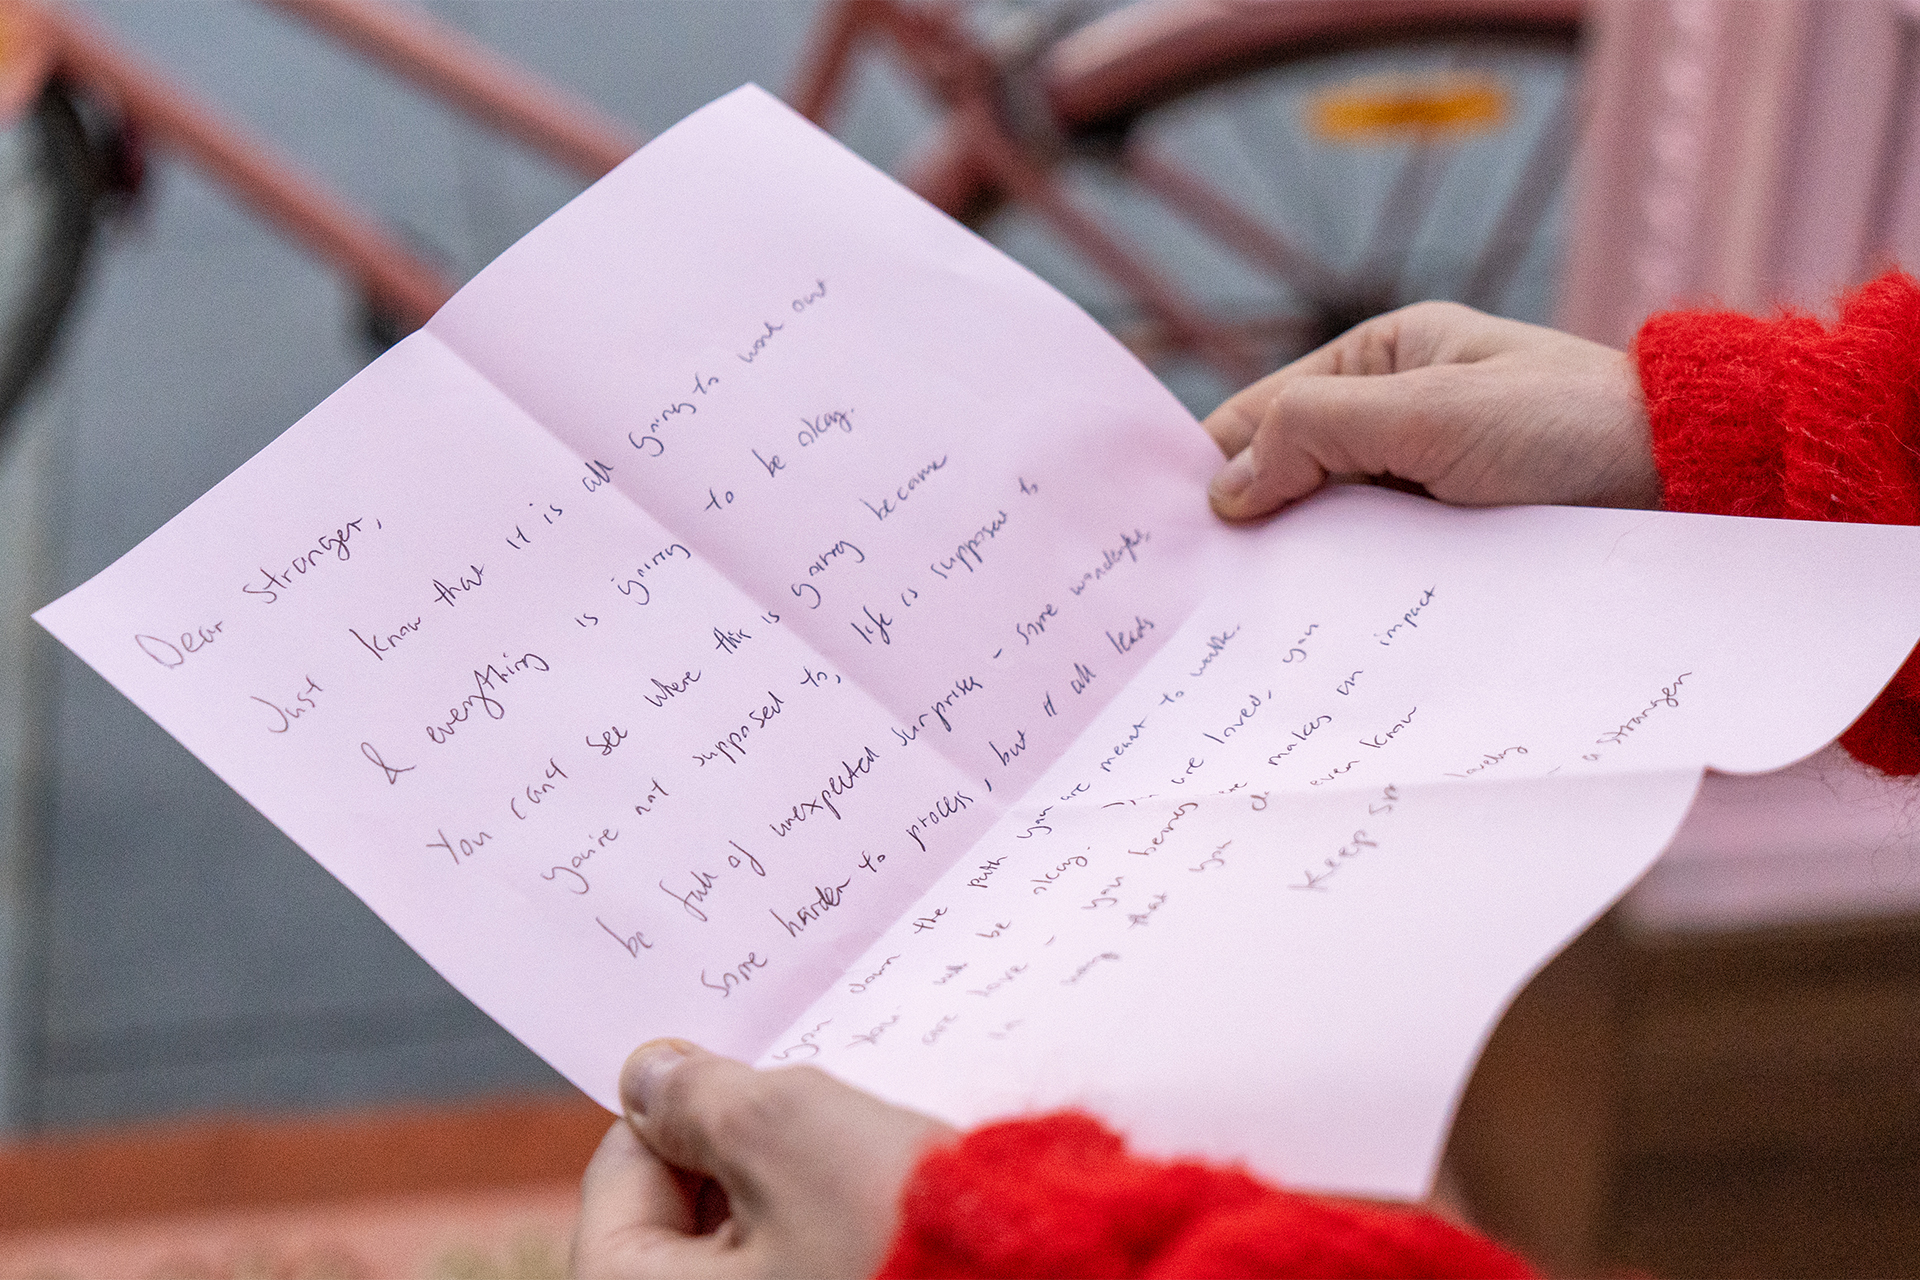 Dear Stranger,
Just know that it is all going to work out
& everything is going to be okay.
You can't see where this is going become
you're not supposed to, life is supposed to
be full of unexpected surprises - some wonderful,
some harder to process, but it all leads
you down the path you are meant to walk.
You will be okay. You are loved, you
are have - you being here makes an impact
in way that you don't even know
Keep smiling lovely
- a stranger